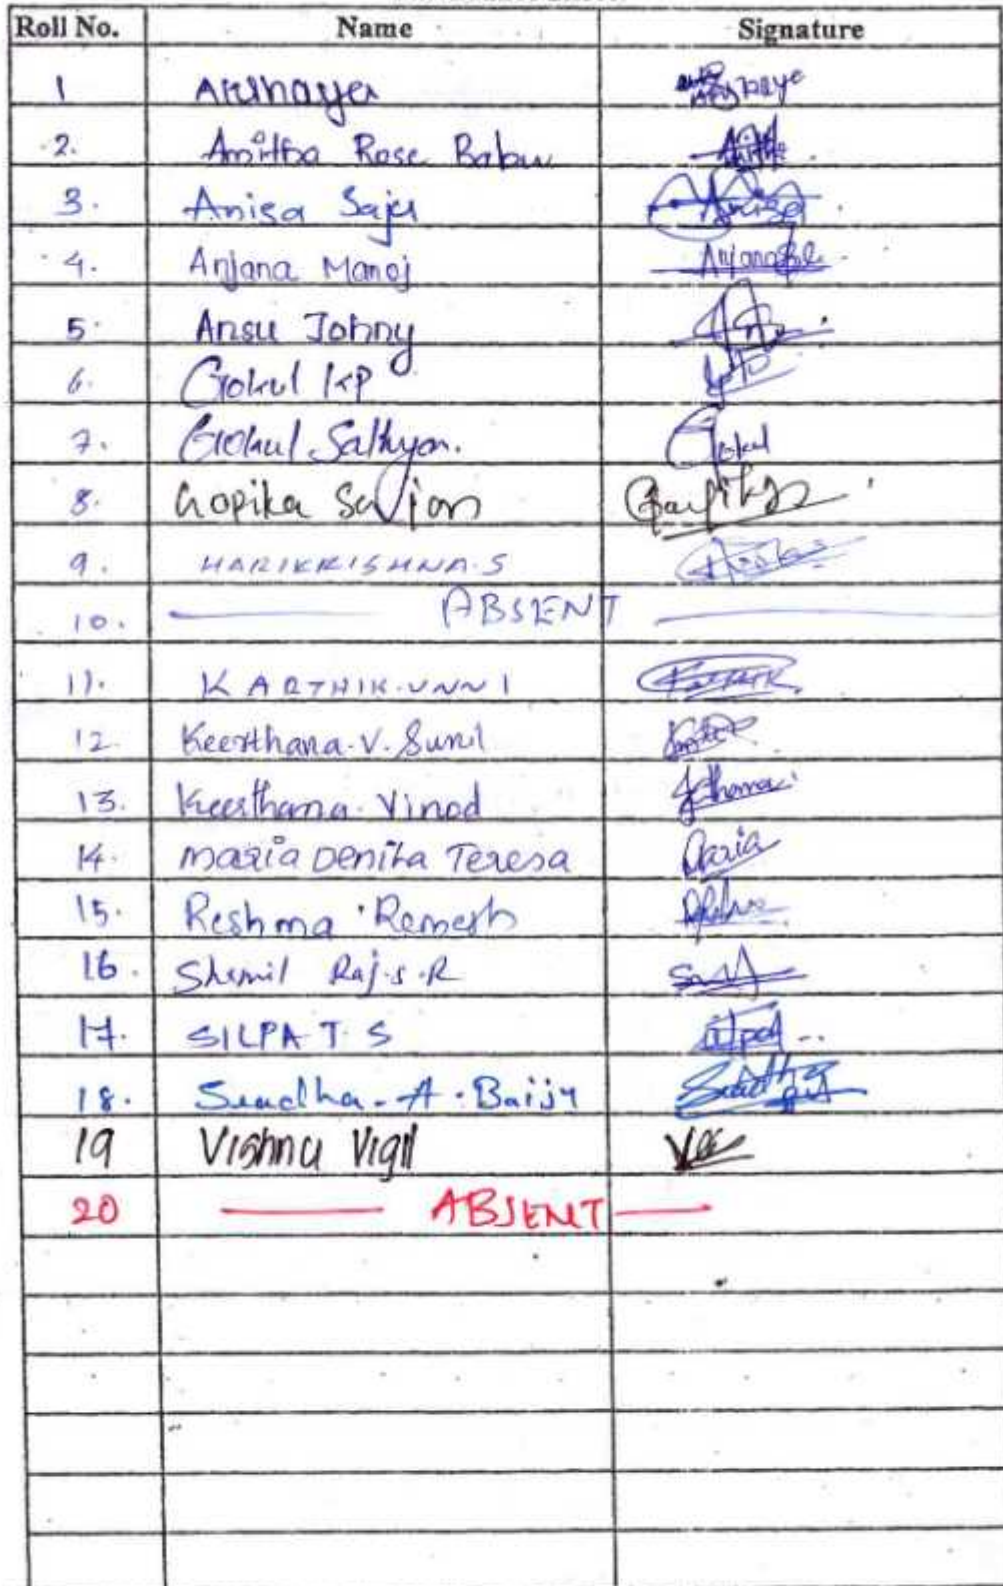 Roll No. Name Signature
1 Akshaya
2. Amitha Rose Babu
3. Anisa Saju Anisa
4. Anjana Manoj Anjana
5. Ansu Johny
6. Gokul KP
7. Gokul Sathyan. Gokul
8. Gopika Sajan Gopika
9. HARIKRISHNA.S
10. ABSENT
11. KARTHIK.UNNI Karthik
12. Keerthana.V.Sunil
13. Keerthana.Vinod
14. Maria Denita Teresa Maria
15. Reshma Remesh
16. Raj.S.R
17. SILPA T.S Silpa
18. A.Baiju
19 Vishnu Vigil
20 ABSENT